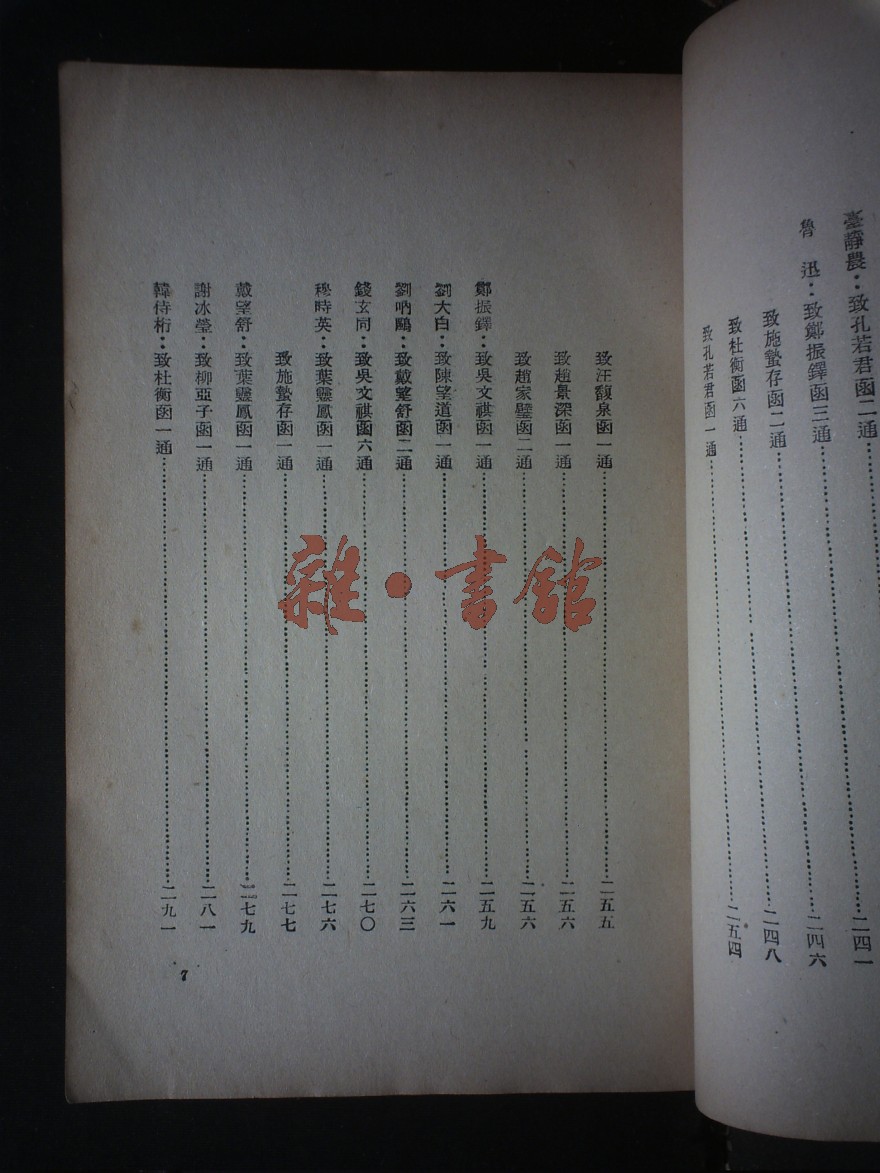 臺靜農：致孔若君函二通……二四一
魯　迅：致鄭振鐸函三通……二四六
致施蟄存函二通……二四八
致杜衡函六通……
致孔若君函一通……二五四
致汪馥泉函一通……二五五
致趙景深函一通……二五六
致趙家璧函二通……二五六
鄭振鐸：致吳文祺函一通……二五九
劉大白：致陳望道函一通……二六一
劉吶鷗：致戴望舒函二通……二六三
錢玄同：致吳文祺函六通……二七〇
穆時英：致葉靈鳳函一通……二七六
致施蟄存函一通……二七七
戴望舒：致葉靈鳳函一通……二七九
謝冰瑩：致柳亞子函一通……二八一
韓侍桁：致杜衡函一通……二九一
7
雜·書館